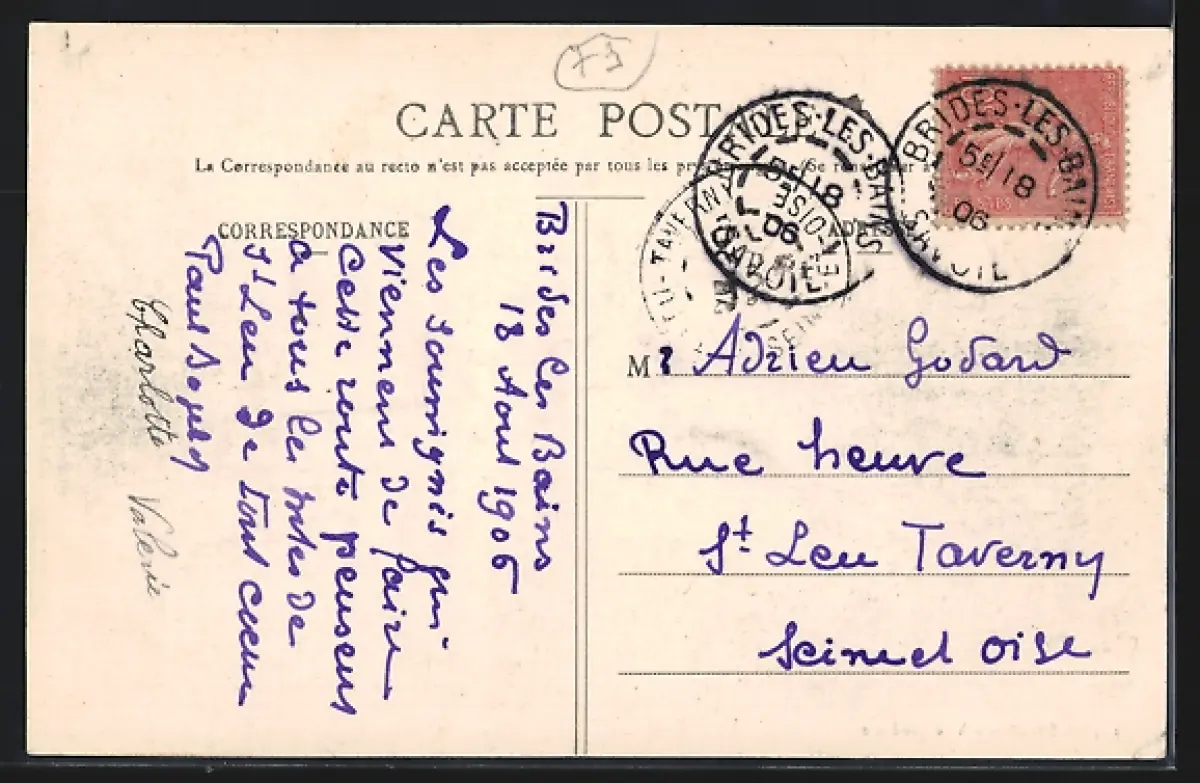 73
CARTE POSTALE
La Correspondance au recto n'est pas acceptée par tous les
CORRESPONDANCE
ADRESSE
BRIDES-LES-BAINS
5E/18
06
SAVOIE
BRIDES-LES-BAINS
5E/18
06
SAVOIE
TAVERNY
SEINE
OISE
Brides les Bains
18 Aout 1906
Les soussignés qui
viennent de faire
cette route pensent
a tous les notres de
St Leu de tout coeur
Paul
Charlotte Valerie
Mr Adrien Godard
Rue neuve
St Leu Taverny
Seine et Oise